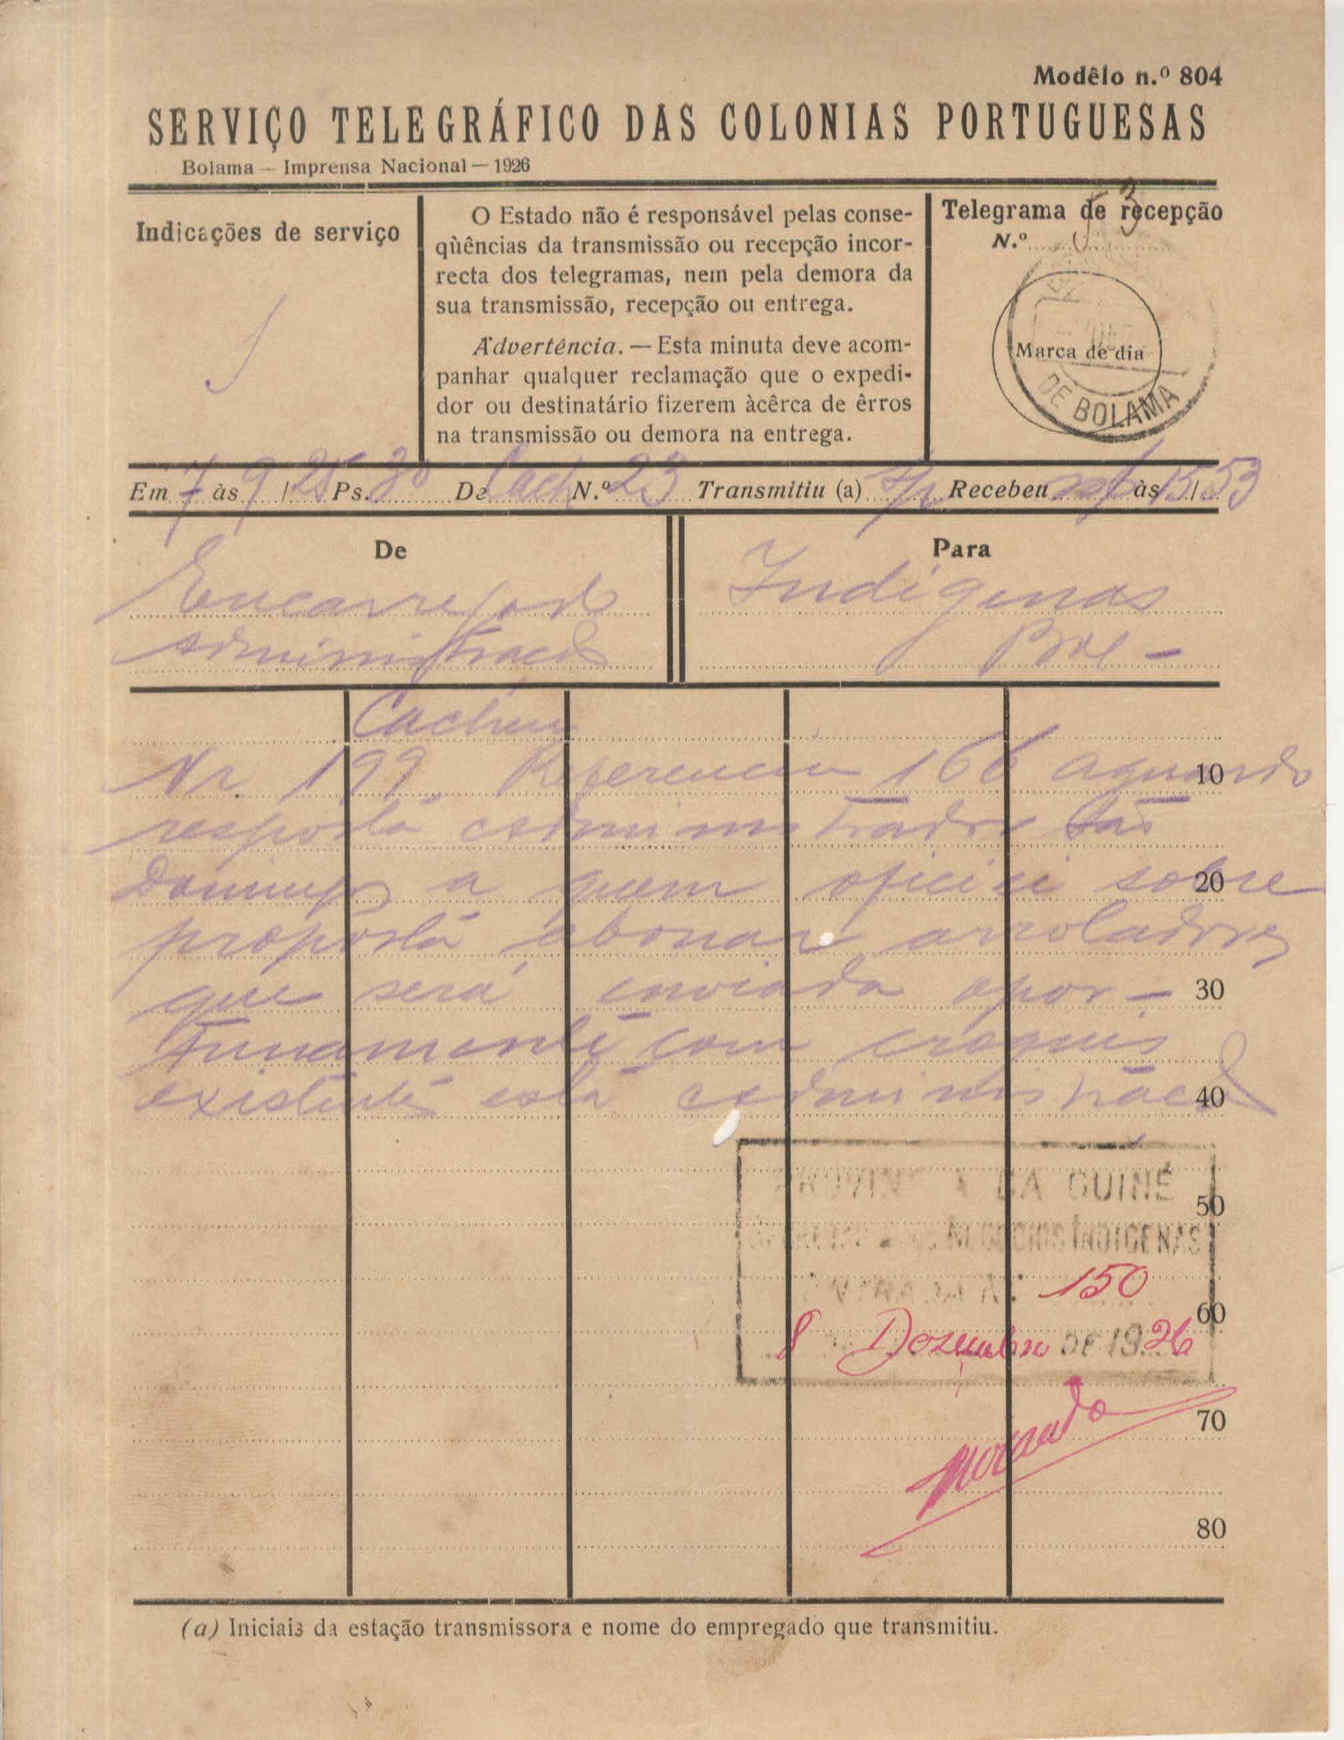 Modêlo n.º 804
SERVIÇO TELEGRÁFICO DAS COLONIAS PORTUGUESAS
Bolama — Imprensa Nacional — 1926
Indicações de serviço
O Estado não é responsável pelas conse-
qùências da transmissão ou recepção incor-
recta dos telegramas, nem pela demora da
sua transmissão, recepção ou entrega.
Advertência. — Esta minuta deve acom-
panhar qualquer reclamação que o expedi-
dor ou destinatário fizerem àcêrca de êrros
na transmissão ou demora na entrega.
Telegrama de recepção
N.º
Marca de dia
DE BOLAMA
Em 7 às 9/25 Ps. 30 De Cach N.º 23 Transmitiu (a) Recebeu às 15/53
De
Para
Encarregado
administração
Indigenas
Bol -
Cacheu
Nr. 199 Referencia 166 aguardo
10
resposta administrador São
Domingos a quem oficiei sobre
20
proposta abonar arroladores
que será enviada opor-
30
tunamente com croquis
existente esta administração
40
PROVINCIA DA GUINÉ
50
NEGOCIOS INDIGENAS
150
60
8 Dezembro DE 1926
70
80
(a) Iniciais da estação transmissora e nome do empregado que transmitiu.